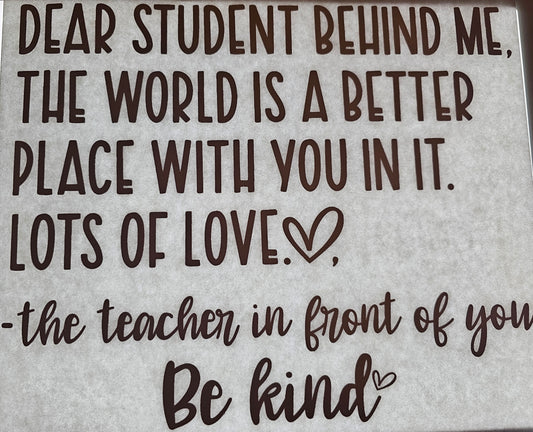 DEAR STUDENT BEHIND ME,
THE WORLD IS A BETTER
PLACE WITH YOU IN IT.
LOTS OF LOVE.♡,
-the teacher in front of you
Be kind♡